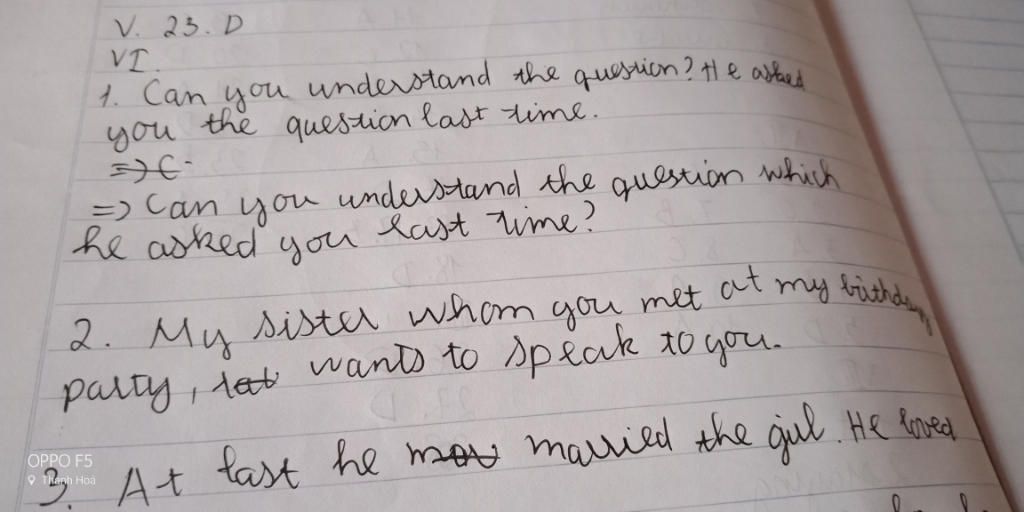 V. 23. D
VI.
1. Can you understand the question? He asked
you the question last time.
=> C
=> Can you understand the question which
he asked you last time?
2. My sister whom you met at my birthday
party, wants to speak to you.
3. At last he married the girl. He loved
OPPO F5
Thanh Hoá